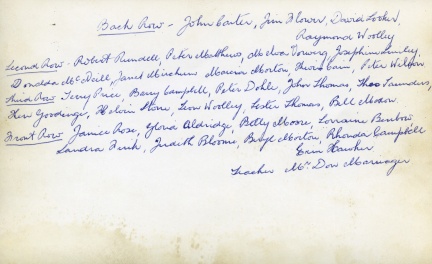 Back Row - John Carter, Jim Flower, David Locker,
Raymond Woolley
Second Row - Robert Rundell, Peter Matthews, Melva Towers, Josephine
Donalda McDall, Janet Minchin, Maura Morton, Peter
Third Row Terry Price, Barry Campbell, Peter Dohle, John Thomas, Theo Saunders,
Kev Goodinge, Helvin Stone, Leon Woolley, Lester Thomas, Bill
Front Row - Janice Rose, Gloria Aldridge, Betty Moore, Lorraine Benbow
Sandra Fink, Judith Bloome, Beryl Morton, Rhonda Campbell
Erin
Teacher Mr Don